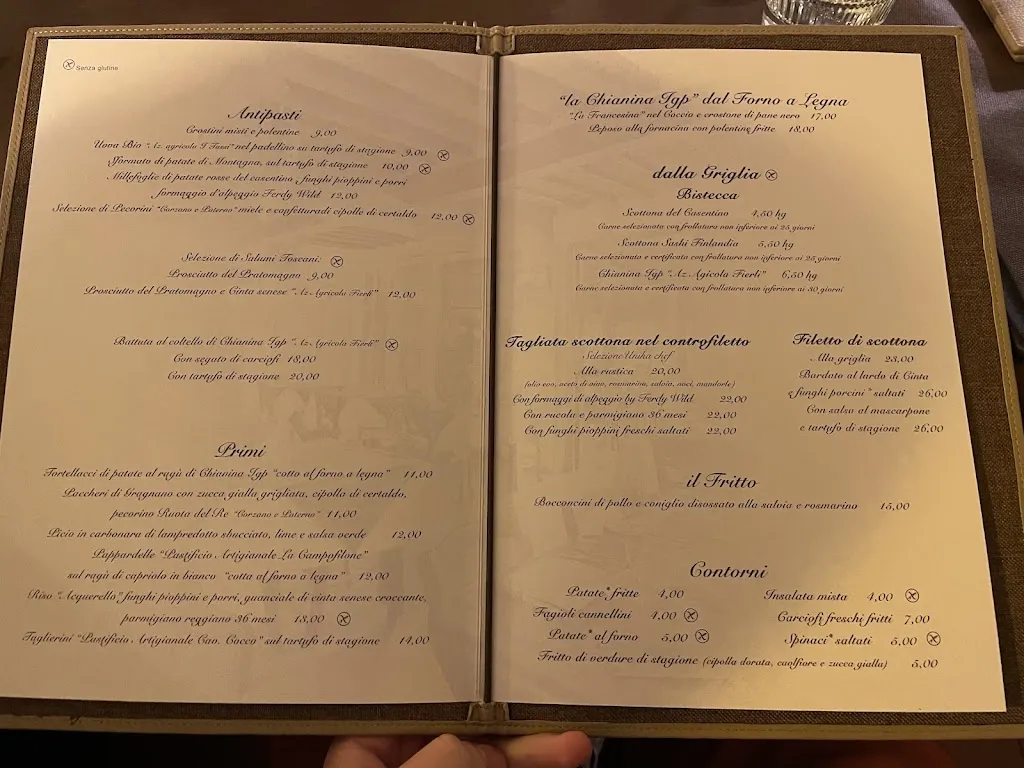 Senza glutine
Antipasti
Crostini misti e polentine 9,00
Uova Bio "Az. agricola I Tassi" nel padellino su tartufo di stagione 9,00
Sformato di patate di Montagna, sul tartufo di stagione 10,00
Millefoglie di patate rosse del casentino, funghi pioppini e porri
formaggio d'alpeggio Ferdy Wild 12,00
Selezione di Pecorini "Corzano e Paterno" miele e confetturadi cipolle di certaldo 12,00
Selezione di Salumi Toscani:
Prosciutto del Pratomagno 9,00
Prosciutto del Pratomagno e Cinta senese "Az Agricola Fierli" 12,00
Battuta al coltello di Chianina Igp "Az Agricola Fierli"
Con segato di carciofi 18,00
Con tartufo di stagione 20,00
Primi
Tortellacci di patate al ragù di Chianina Igp "cotto al forno a legna" 11,00
Paccheri di Gragnano con zucca gialla grigliata, cipolla di certaldo,
pecorino Ruota del Re "Corzano e Paterno" 11,00
Picio in carbonara di lampredotto sbucciato, lime e salsa verde 12,00
Pappardelle "Pastificio Artigianale La Campofilone"
sul ragù di capriolo in bianco "cotta al forno a legna" 12,00
Riso "Acquerello" funghi pioppini e porri, guanciale di cinta senese croccante,
parmigiano reggiano 36 mesi 13,00
Taglierini "Pastificio Artigianale Cav. Cocco" sul tartufo di stagione 14,00
"la Chianina Igp" dal Forno a Legna
"La Francesina" nel Coccio e crostone di pane nero 17,00
Peposo alla fornacina con polentine fritte 18,00
dalla Griglia
Bistecca
Scottona del Casentino 4,50 hg
Carne selezionata con frollatura non inferiore ai 25 giorni
Scottona Sashi Finlandia 5,50 hg
Carne selezionata e certificata con frollatura non inferiore ai 25 giorni
Chianina Igp "Az Agicola Fierli" 6,50 hg
Carne selezionata e certificata con frollatura non inferiore ai 30 giorni
Tagliata scottona nel controfiletto
Selezione Unika chef
Alla rustica 20,00
(olio evo, aceto di vino, rosmarino, salvia, noci, mandorle)
Con formaggi di alpeggio by Ferdy Wild 22,00
Con rucola e parmigiano 36 mesi 22,00
Con funghi pioppini freschi saltati 22,00
Filetto di scottona
Alla griglia 23,00
Bardato al lardo di Cinta
e funghi porcini* saltati 26,00
Con salsa al mascarpone
e tartufo di stagione 26,00
il Fritto
Bocconcini di pollo e coniglio disossato alla salvia e rosmarino 15,00
Contorni
Patate* fritte 4,00
Fagioli cannellini 4,00
Patate* al forno 5,00
Insalata mista 4,00
Carciofi freschi fritti 7,00
Spinaci* saltati 5,00
Fritto di verdure di stagione (cipolla dorata, caolfiore e zucca gialla) 5,00